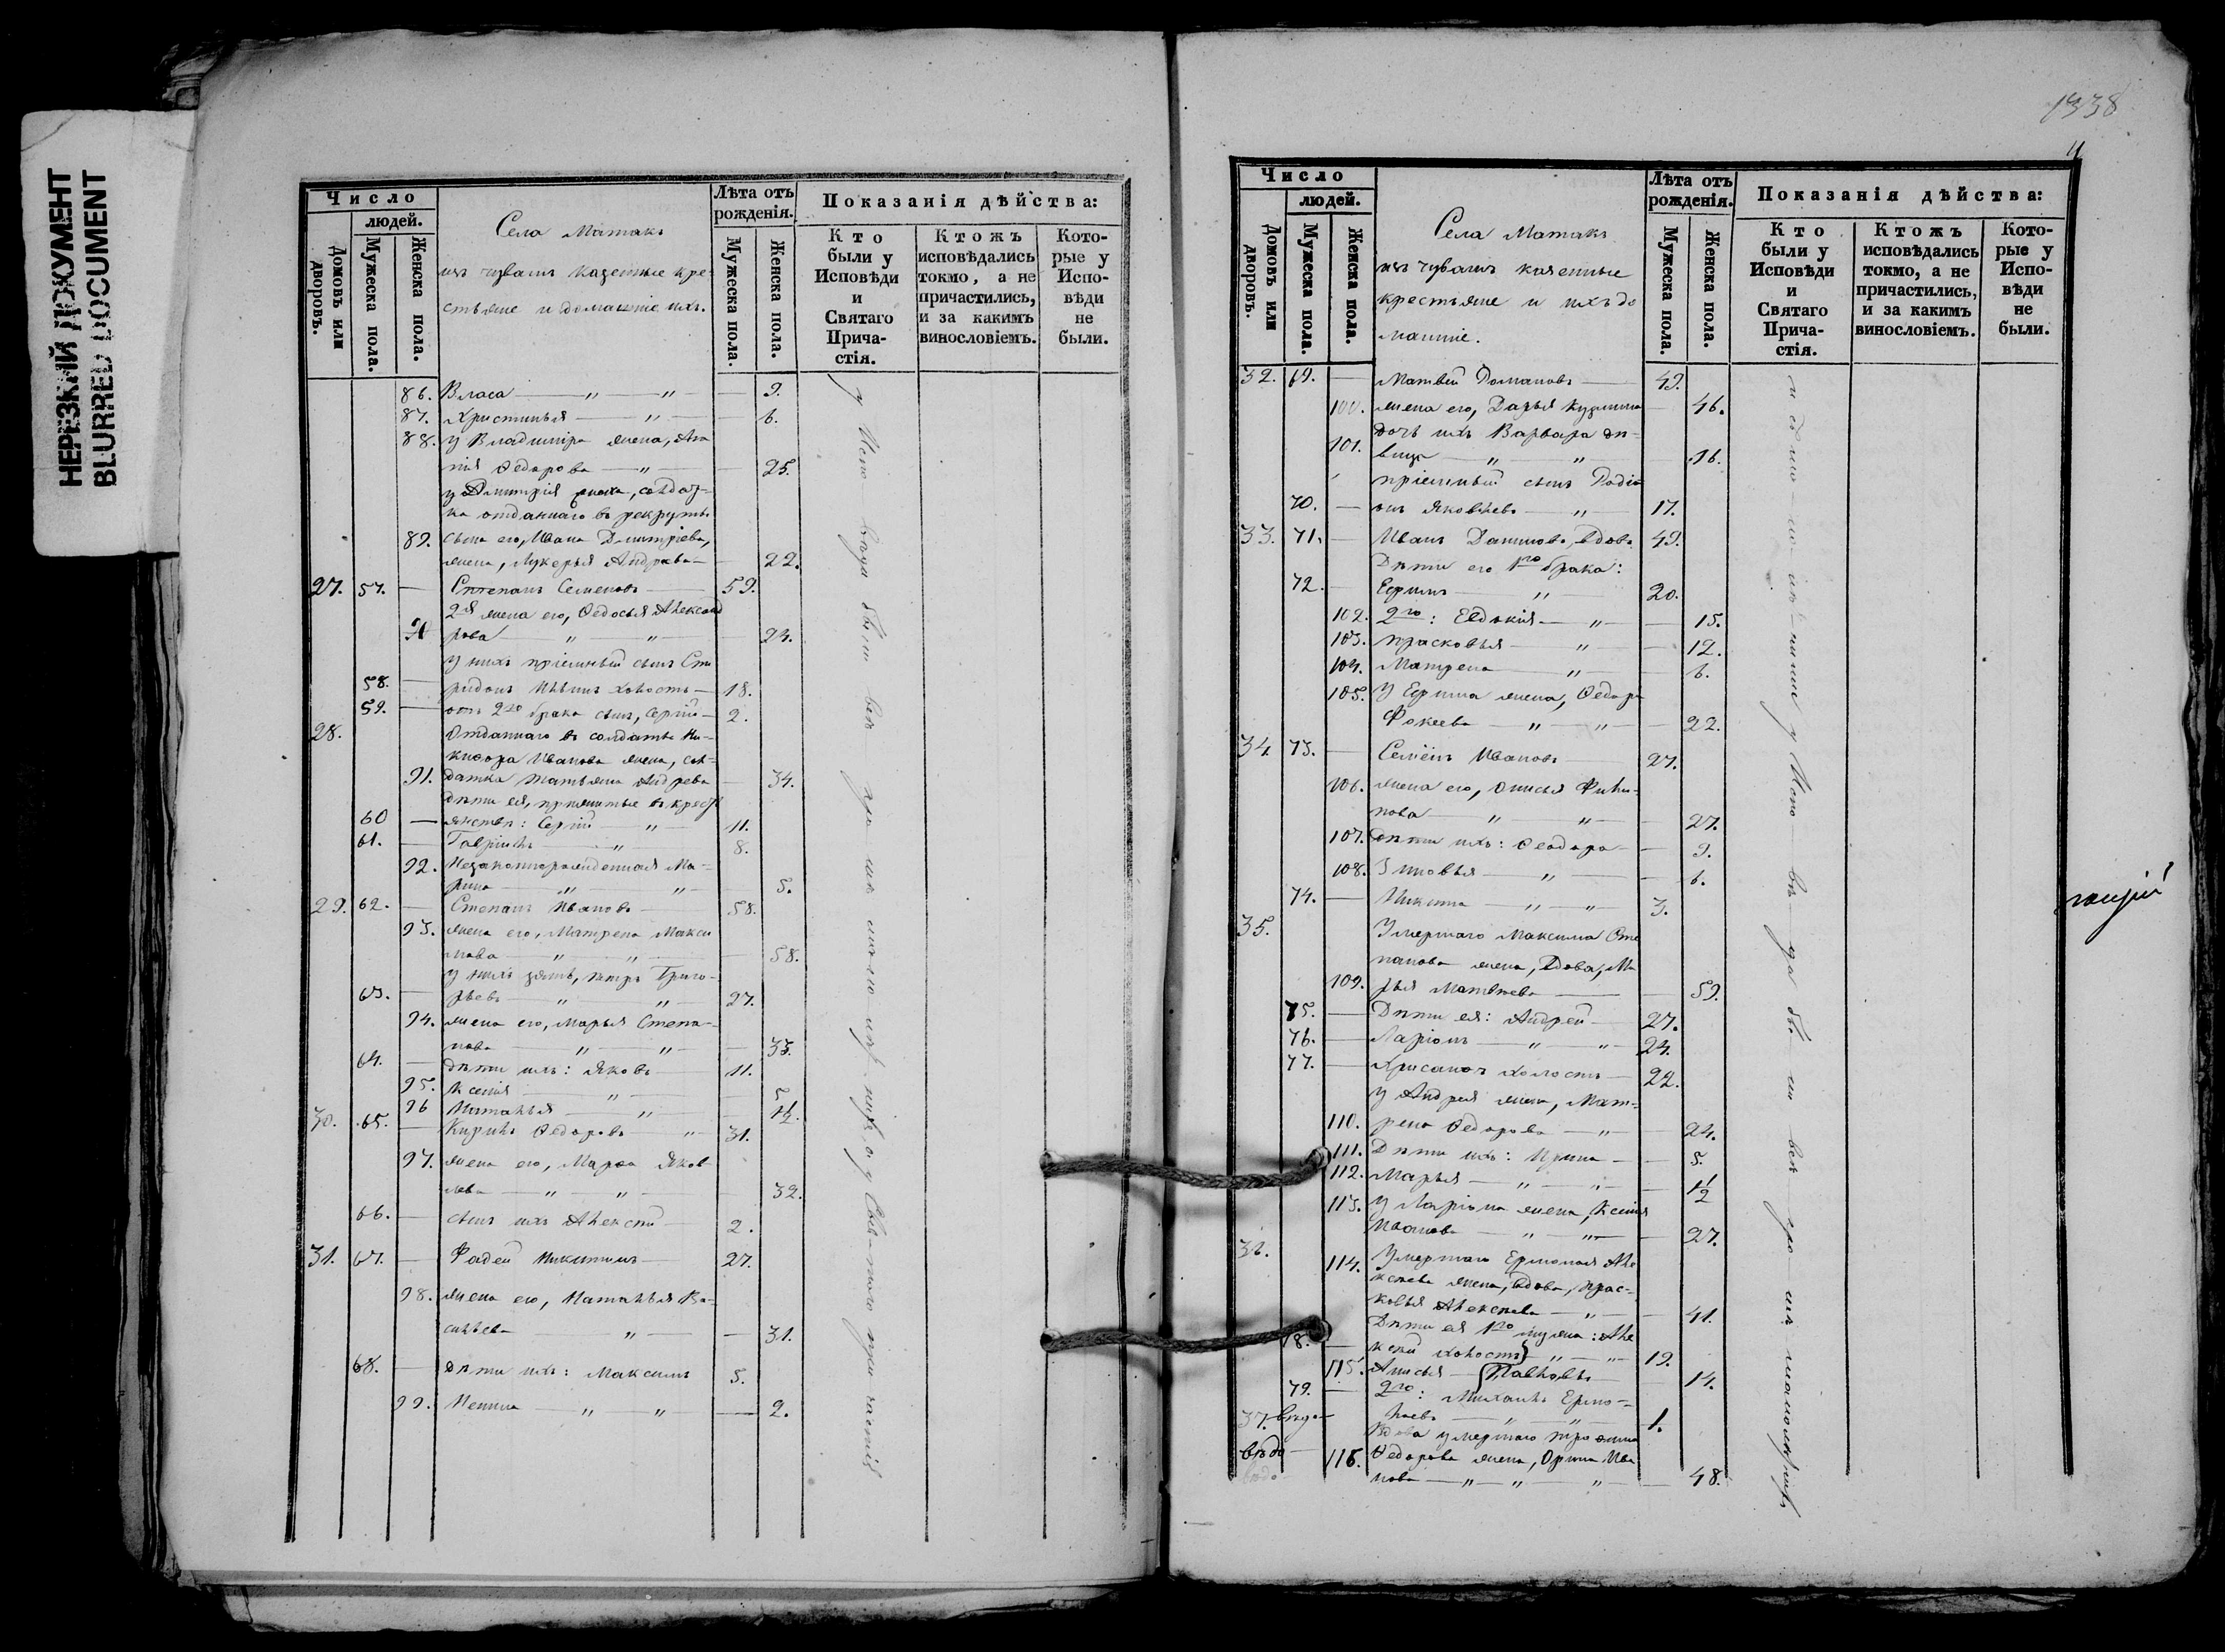 НЕРЕЗКИЙ ДОКУМЕНТ
BLURRED DOCUMENT
Число
людей.
Домовъ или дворовъ.
Мужеска пола.
Женска пола.
Села Матакъ
изъ чувашъ казенные кре-
стьяне и домашніе ихъ.
Лѣта отъ рожденія.
Мужеска пола.
Женска пола.
Показанія дѣйства:
Кто были у Исповѣди и Святаго Прича-стія.
Ктожъ исповѣдались токмо, а не причастились, и за какимъ винословіемъ.
Кото-рые у Испо-вѣди не были.
86. Власа — " — " — 9.
87. Христинья — " — 6.
88. У Владиміра жена, Ана
нія Ѳедорова — " — 25.
у Димитрія жена, солдат-
ка отданнаго въ рекруты
89. сына его, Ивана Димитріева,
жена, Лукерья Андрева — 22.
27. 57. — Степанъ Семеновъ — 59.
2я жена его, Ѳедосья Александ
90 рова — " — " — 24.
У нихъ пріемный сынъ Спи
58. — ридонъ Ильинъ холостъ — 18.
59. — отъ 2го брака сынъ, Сергій — 2.
28. Отданнаго въ солдаты Ни-
кифора Иванова жена, сол-
91. датка Татьяна Андрева — 34.
дѣти ея, прижитые въ кресть
60 — янствѣ: Сергій — " — 11.
61. — Гаврiилъ — " — 8.
92. Незаконнорожденная Ма-
рина — " — " — 5.
29. 62. — Степанъ Ивановъ — 58.
93. жена его, Матрена Макси
мова — " — " — 58.
У нихъ зять, Петръ Григо-
63. — рьевъ — " — " — 27.
94. жена его, Марья Степа-
нова — " — " — 33.
64. — дѣти ихъ: Яковъ — 11.
95. Ксенія — " — 5
96 Наталья — " — 1½.
30. 65. — Кирилъ Ѳедоровъ — " — 31.
97. жена его, Марѳа Яков
лева — " — " — 32.
66. — сынъ ихъ Алексѣй — 2.
31. 67. — Фадей Никитинъ — 27.
98. жена его, Наталья Ва-
сильева — " — 31.
68. — дѣти ихъ: Максимъ 5.
99. Ненила — " — " — 2.
1338
Число
людей.
Домовъ или дворовъ.
Мужеска пола.
Женска пола.
Села Матакъ
изъ чувашъ казенные
крестьяне и ихъ до
машніе.
Лѣта отъ рожденія.
Мужеска пола.
Женска пола.
Показанія дѣйства:
Кто были у Исповѣди и Святаго Прича-стія.
Ктожъ исповѣдались токмо, а не причастились, и за какимъ винословіемъ.
Кото-рые у Испо-вѣди не были.
32. 69. — Матвей Романовъ — 49.
100. жена его, Дарья Кузмина — 46.
дочь ихъ Варвара дѣ-
101. вица — " — " — 16.
пріемный сынъ Родіо
70. — онъ Яковлевъ — " — 17.
33. 71. — Иванъ Даниловъ, вдовъ 49.
Дѣти его 1го брака:
72. — Ефимъ — " — 20.
102. 2го: Евдокія — " — 15.
103. Прасковья — " — 12.
104. Матрена — " — 6.
105. У Ефима жена, Ѳедора
Фокеева — " — " — 22.
34. 73. — Семенъ Ивановъ — 27.
106. жена его, Анисья Фили-
пова — " — " — 27.
107. дѣти ихъ: Ѳеодора — 9.
108. Зиновья — " — 6.
74. — Никита — " — " — 3.
35. Умершаго Максима Сте
панова жена, вдова, Ма
109. рья Матвѣева — 59.
75. — Дѣти ея: Андрей — 27.
76. — Ларіонъ — " — " — 24.
77. — Хрисанѳъ холостъ — 22.
у Андрея жена, Мат-
110. рена Ѳедорова — " — 24.
111. Дѣти ихъ: Ирина — 5.
112. Марья — " — " — 1½
113. У Ларіона жена, Ксенія
Иванова — " — " — 27.
36. Умершаго Ермолая Але
114. ксѣева жена, вдова, Прас-
ковья Алексѣева — " — 41.
Дѣти ея 1го мужа: Але
78. — ксѣй холостъ — " — " — 19.
115. Анисья — Павловы — 14.
79. — 2го: Михаилъ Ермо-
лаевъ — " — " — 1.
37. Вдова умершаго Трофима
116. Ѳедорова жена, Орина Ива
нова — " — " — " — 48.